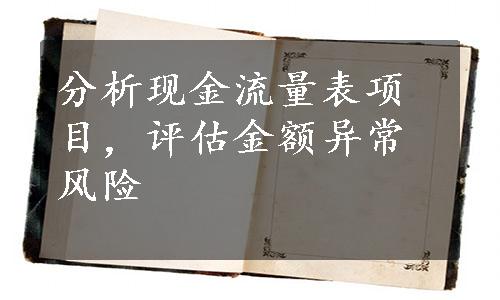 分析现金流量表项
目，评估金额异常
风险